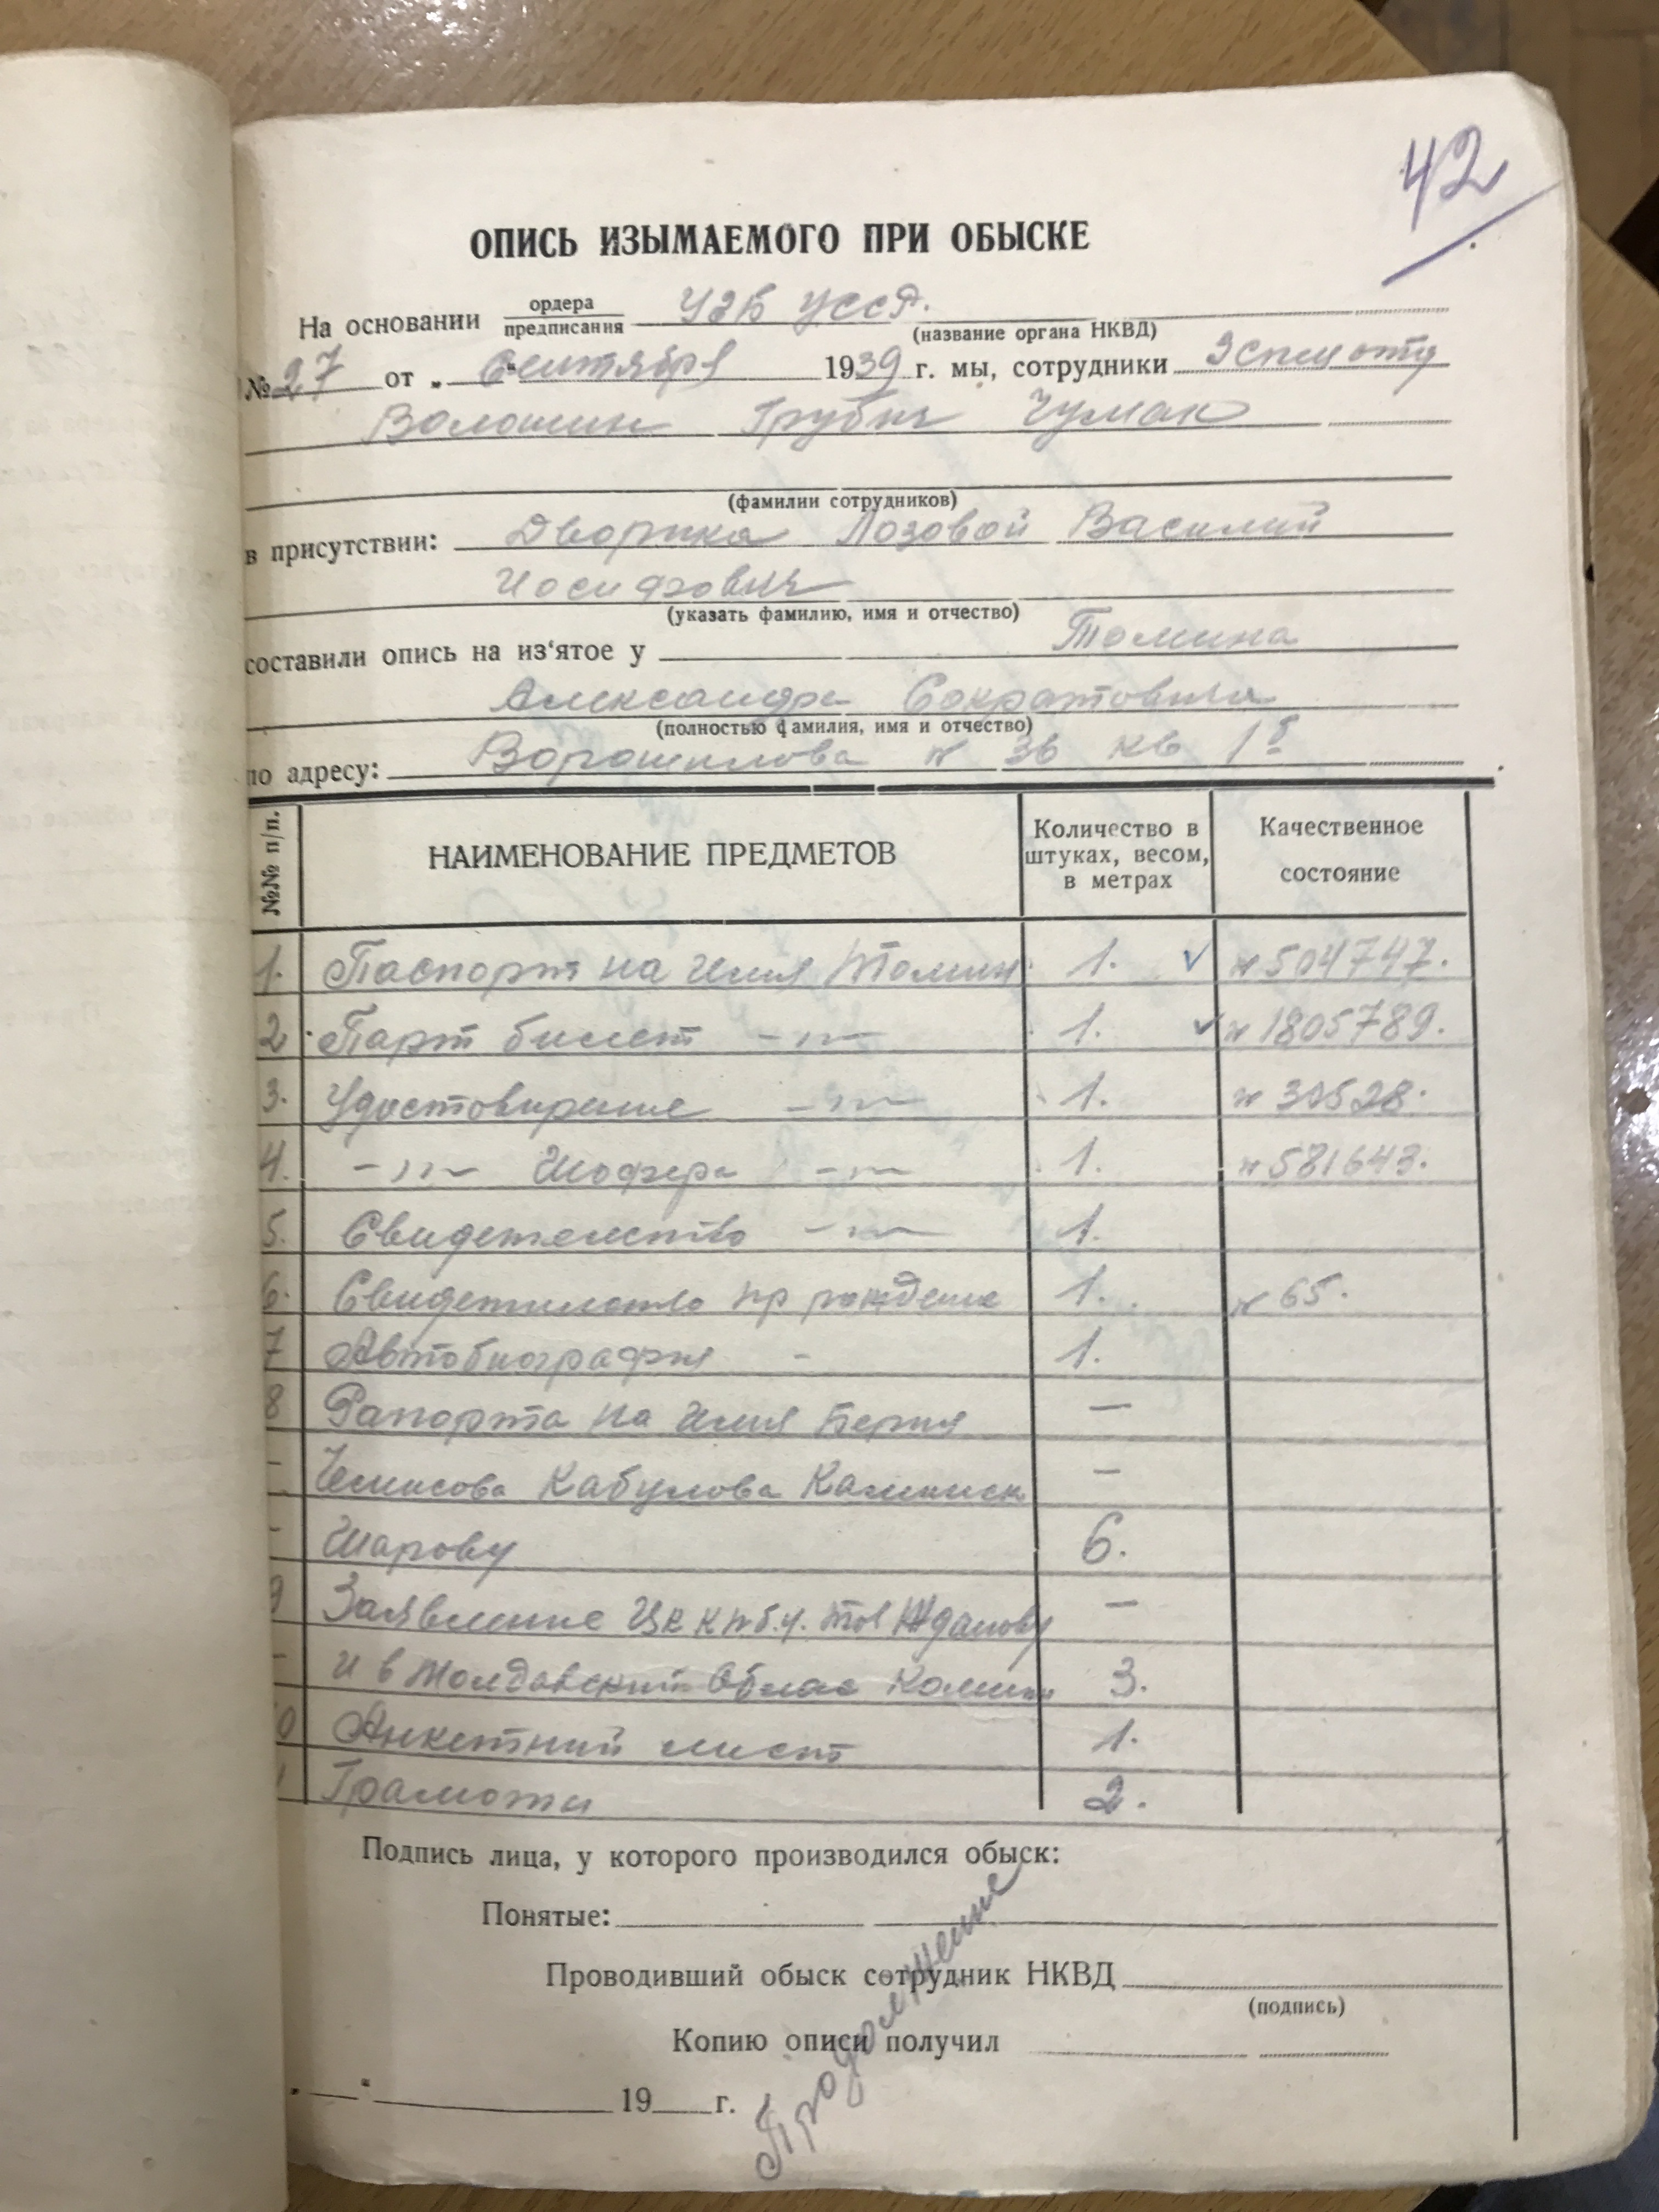 42
ОПИСЬ ИЗЫМАЕМОГО ПРИ ОБЫСКЕ
На основании ордера УГБ УССР.
предписания (название органа НКВД)
№ 27 от „ “ Сентября 1939 г. мы, сотрудники
Волошин Грубич Чумак
(фамилии сотрудников)
в присутствии: Дворника Лозовой Василий
Иосифович
(указать фамилию, имя и отчество)
составили опись на из‘ятое у Томина
Александра Сократовича
(полностью фамилия, имя и отчество)
по адресу: Ворошилова № 36 кв 1
№№ п/п. НАИМЕНОВАНИЕ ПРЕДМЕТОВ Количество в штуках, весом, в метрах Качественное состояние
1. Паспорт на имя Томин 1. № 504747.
2 Парт билет -„- 1. № 1805789.
3. Удостовирение -„- 1. № 30528.
4. -„- Шофера -„- 1. № 581643.
5. Свидетельство -„- 1.
6. Свидетилство пр рождение 1. № 65.
7 Автобиография - 1.
8 Рапорта на имя Берия —
- Кабулова —
- Шарову 6.
9 Заявление ЦК КПб.У. тов Жданову —
- и в Молдавский Облас 3.
10 Анкетний лист 1.
Грамоты 2.
Подпись лица, у которого производился обыск:
Понятые:
Проводивший обыск сотрудник НКВД
(подпись)
Копию описи получил
„ “ 19 г.
Продолжение